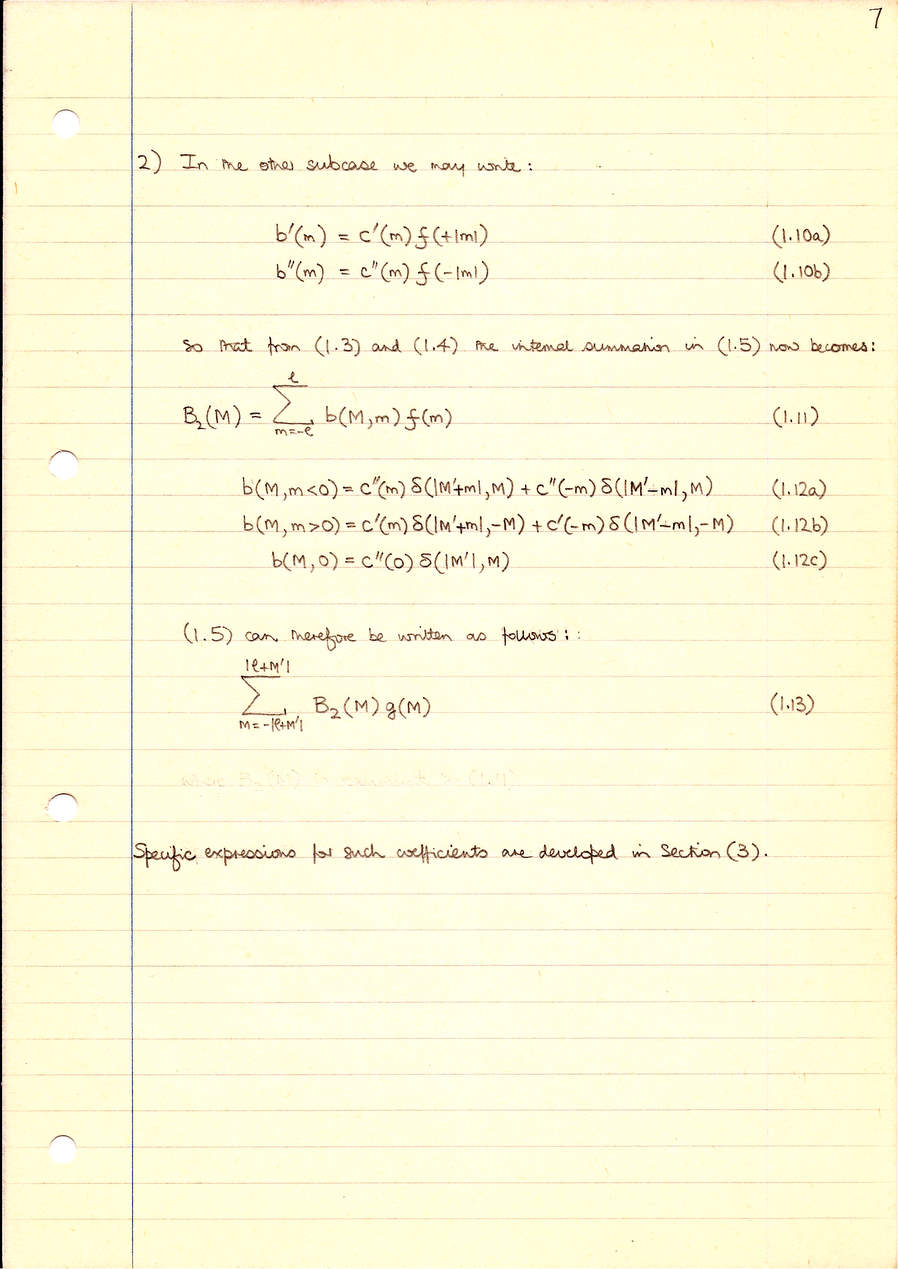 7
2) In the other subcase we may write :
b′(m) = c′(m) f(+|m|) (1.10a)
b″(m) = c″(m) f(-|m|) (1.10b)
So that from (1.3) and (1.4) the internal summation in (1.5) now becomes:
B₂(M) = ∑_{m=-ℓ}^{ℓ} b(M,m) f(m) (1.11)
b(M,m<0) = c″(m) δ(|M′+m|,M) + c″(-m) δ(|M′-m|,M) (1.12a)
b(M,m>0) = c′(m) δ(|M′+m|,-M) + c′(-m) δ(|M′-m|,-M) (1.12b)
b(M,0) = c″(0) δ(|M′|,M) (1.12c)
(1.5) can therefore be written as follows : :
∑_{M=-|ℓ+M′|}^{|ℓ+M′|} B₂(M) g(M) (1.13)
Specific expressions for such coefficients are developed in Section (3).